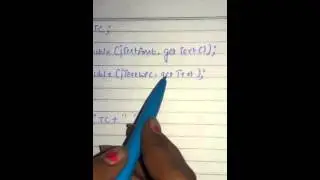 TC;
uble (jTextAmt. get Text());
uble (jText wtc. get Text);
"TC + "